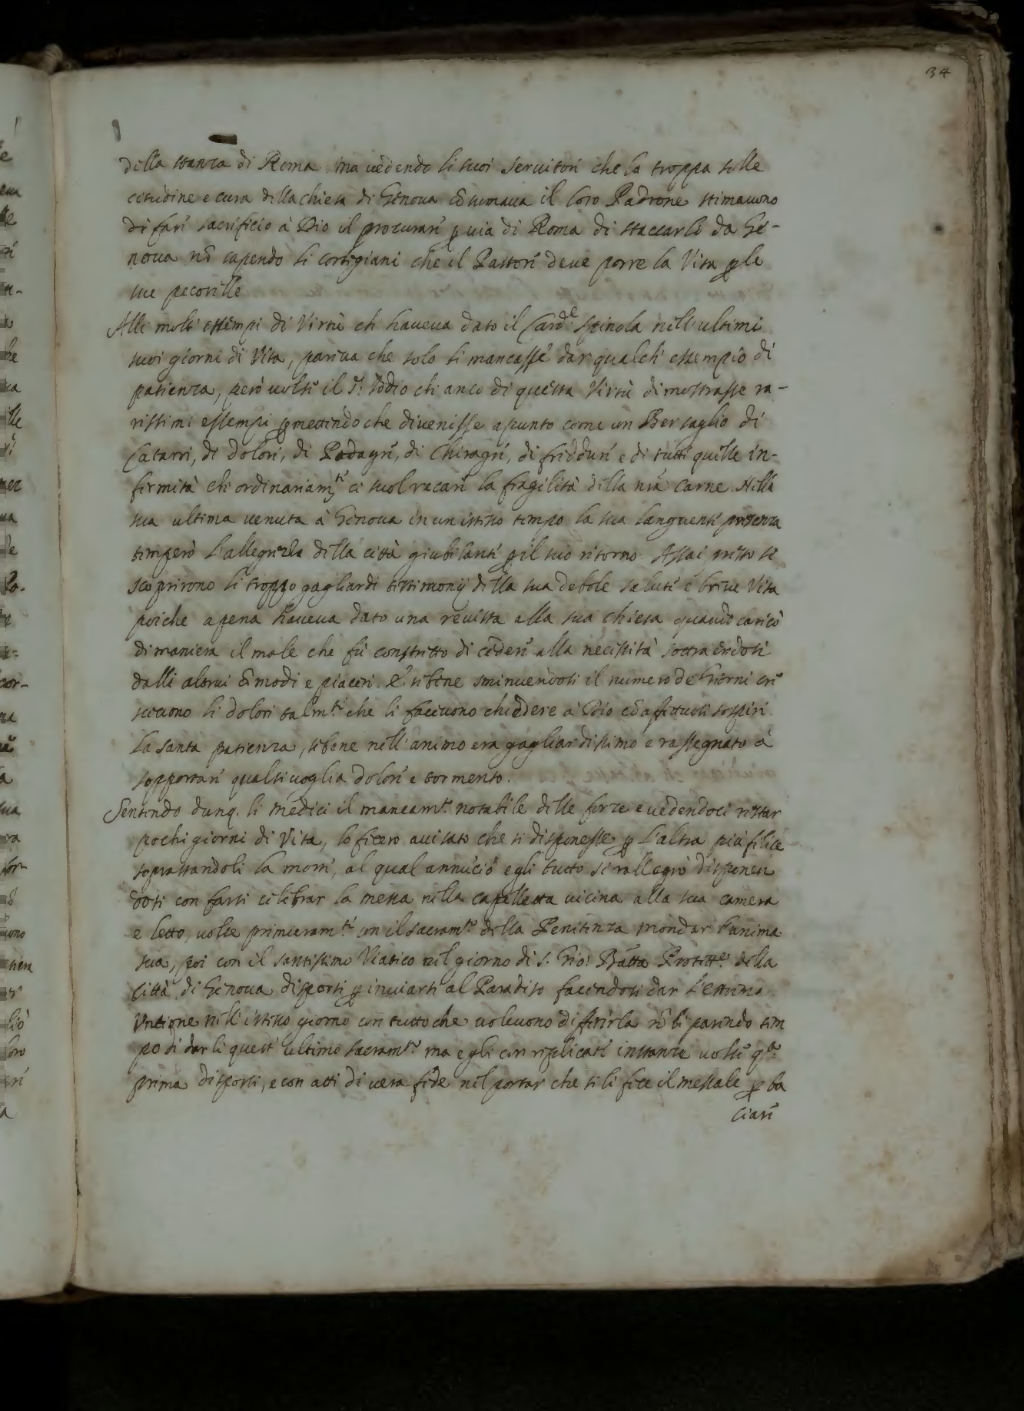 34
della stanza di Roma ma vedendo li suoi servitori che la troppa solle
citudine e cura della chiesa di Genova consumaua il loro Padrone stimauono
di far sacrificio à Dio il procurare p via di Roma di staccarlo da Ge-
noua nõ sapendo li cortigiani che il Pastore deue porre la Vita p le
sue pecorelle
Alli molti essempi di Virtù che haueua dato il Card.le Spinola nell'ultimi
suoi giorni di Vita, pareua che solo li mancasse dar qualche essempio di
patienza, però uolse il S.r Iddio che anco di questa Virtù dimostrasse ra-
rissimi essempi pmettendo che divenisse apunto come un Bersaglio di
Catarri, di dolori, di Podagre, di Chiragre, di freddure e di tutte quelle in-
firmità che ordinariam.te ci suol recare la fragilità della nr̃a Carne. Nella
sua ultima uenuta à Genoua in un istesso tempo la sua languente presenza
temperò l'allegrezza della città giubilante p il suo ritorno. Assai presto si
scoprirono li troppo gagliardi testimonij della sua debole salute e breue Vita
poiche apena haueua dato una reuista alla sua chiesa quando caricò
di maniera il male che fù constretto di cedere alla necessità sottraendosi
dalli alcui cõmodi e piaceri. E' sebene sminuendosi il numero de giorni cre
sceuono li dolori talm.te che li faceuono chiedere à Dio cõ affettuosi sospiri
la santa patienza, sebene nell'animo era gagliardissimo e rassegnato à
sopportare qualsiuoglia dolore e tormento.
Sentendo dunq. li medici il mancam.to notabile delle forze e vedendoci restar
pochi giorni di Vita, lo fecero auisato che si disponesse p l'altra più felice
soprastandoli la morte, al qual annũcio egli tutto si rallegrò disponen
dosi con farsi celebrar la messa nella capelletta uicina alla sua camera
e letto, uolse primieram.te con il sacram.to della Penitenza mondar l'anima
sua, poi con il santissimo Viatico nel giorno di S. Gio: Batta Protett.re della
Città di Genoua disporsi p inuiarsi al Paradiso facendosi dar l'estrema
Vntione nell'istesso giorno con tutto che uoleuono differirla nõ li parendo tem
po di darli quest'ultimo sacram.to ma egli con replicate instanze uolse q.to
prima disporsi, e con atti di uera fede nel portar che si li fece il messale p ba
ciare